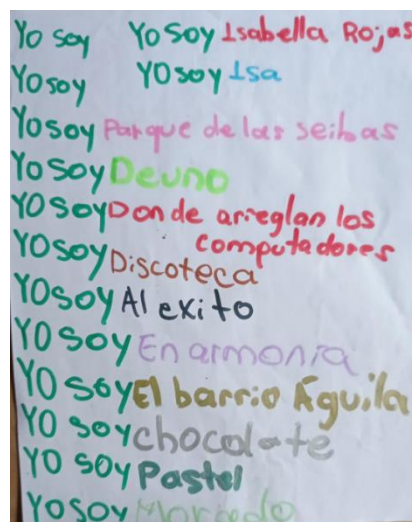 Yo soy Yo soy Isabella Rojas
Yo soy Yo soy Isa
Yo soy Parque de las seibas
Yo soy Deuno
Yo soy Donde arreglan los
computadores
Yo soy Discoteca
Yo soy Al exito
Yo soy En armonia
Yo soy El barrio Águila
Yo soy chocolate
Yo soy Pastel
Yo soy